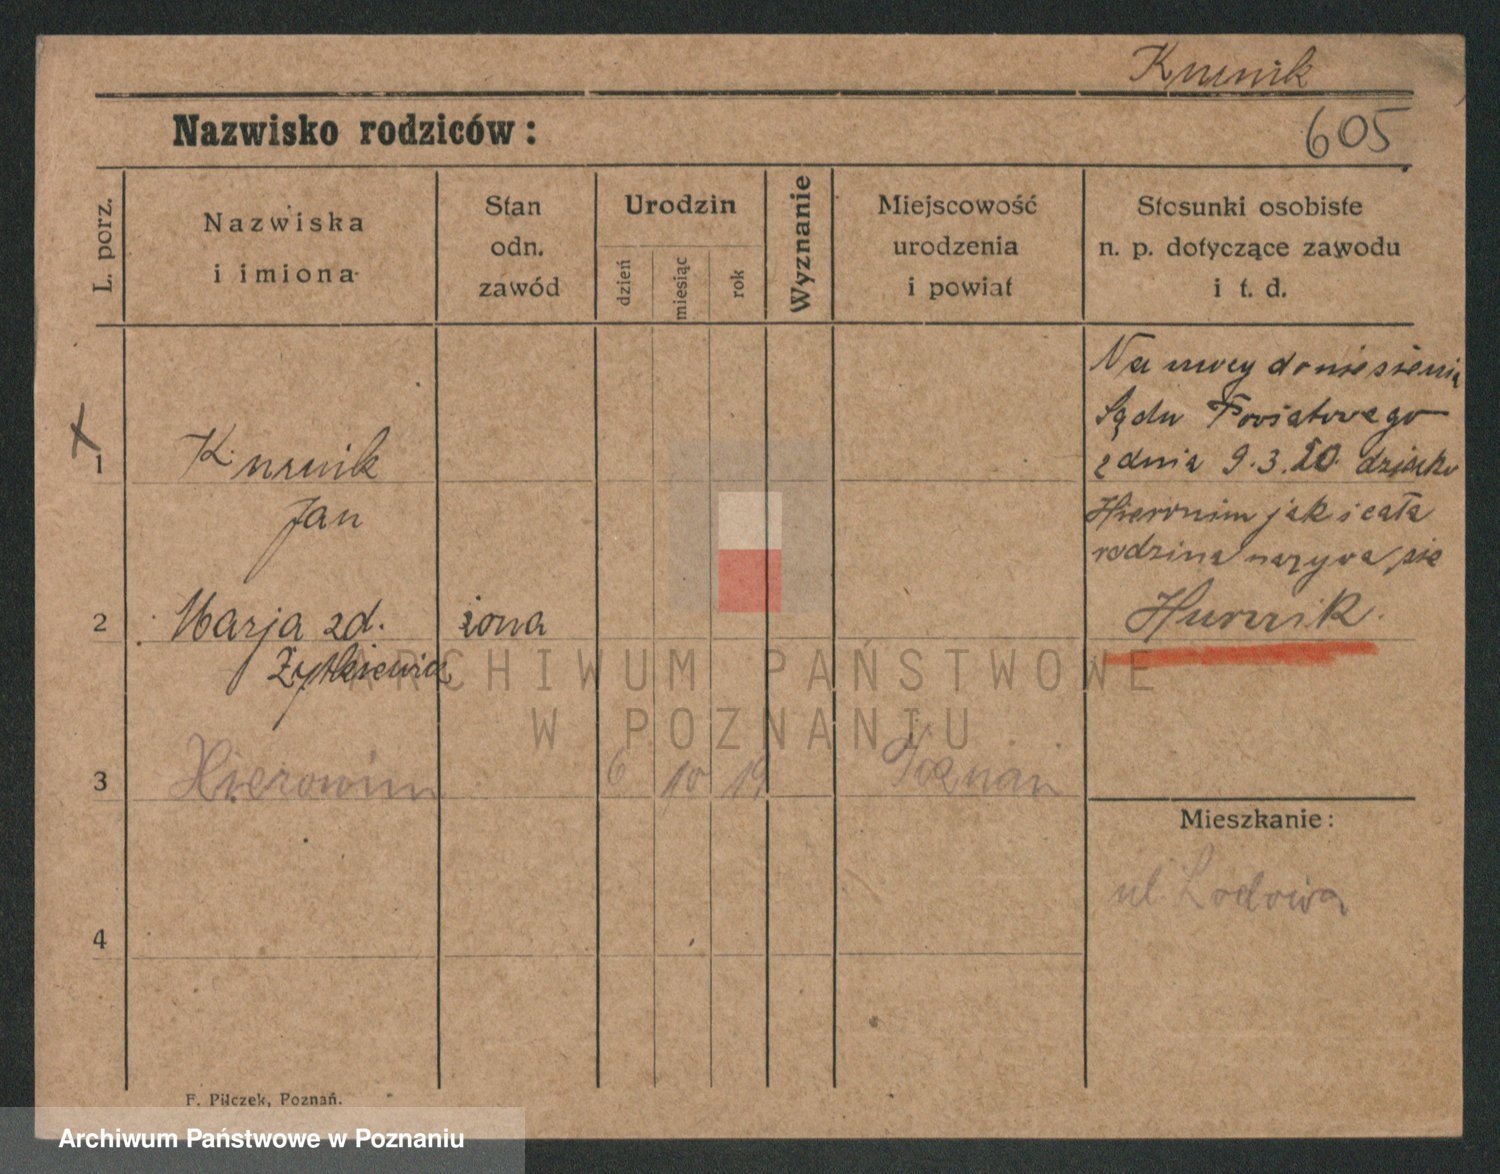 Knunik
605
Nazwisko rodziców:
L. porz.
Nazwiska
i imiona
Stan
odn.
zawód
Urodzin
dzień
miesiąc
rok
Wyznanie
Miejscowość
urodzenia
i powiat
Stosunki osobiste
n. p. dotyczące zawodu
i t. d.
Na mocy doniesienia
Sądu Powiatowego
z dnia 9.3.20. dziecko
Hieronim jak i cała
rodzina nazywa się
Hurnik.
1
Knunik
Jan
2
Marja zd.
żona
3
Hieronim
6
10
19
Poznań
4
Mieszkanie:
ul. Lodowa
F. Pilczek, Poznań.
ARCHIWUM PAŃSTWOWE
W POZNANIU
Archiwum Państwowe w Poznaniu